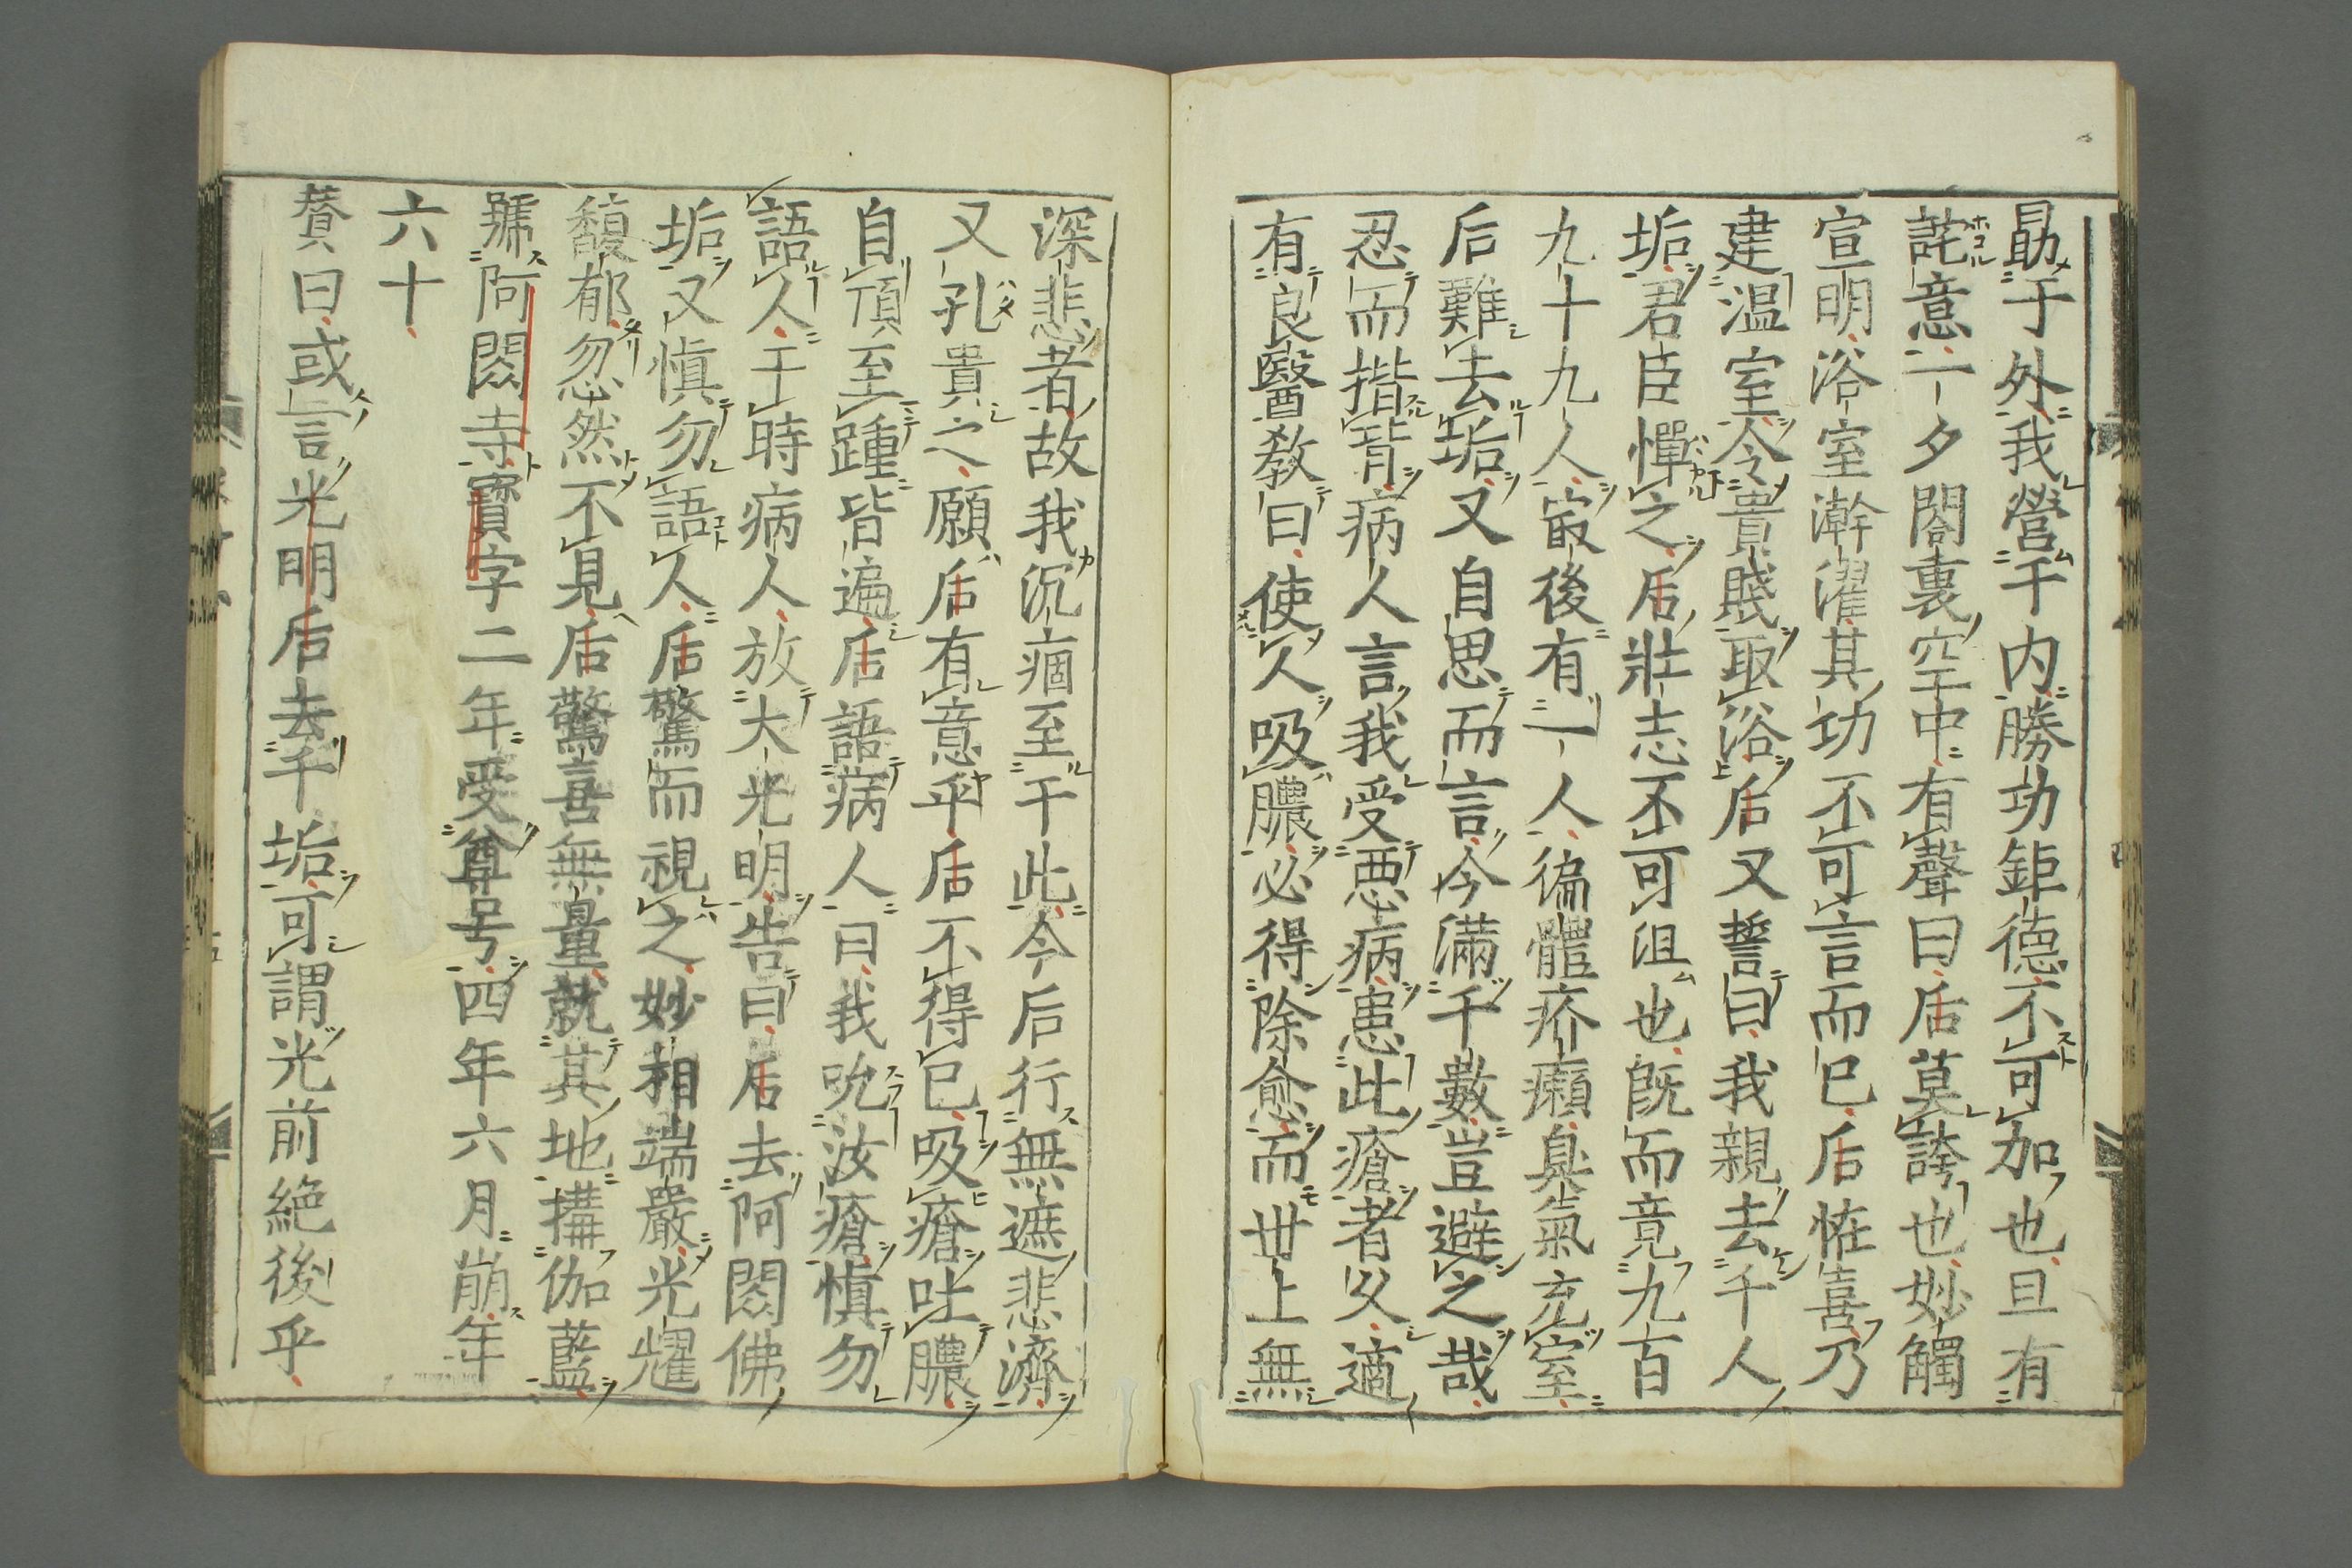 勗于外我營于内勝功鉅德不可加也且有
詫意一夕閤裏空中有聲曰后莫誇也妙觸
宣明浴室澣濯其功不可言而已后恠喜乃
建温室令貴賤取浴后又誓曰我親去千人
垢君臣憚之后壯志不可沮也既而竟九百
九十九人㝡後有一人徧體疥癩臭氣充室
后難去垢又自思而言今滿千數豈避之哉
忍而揩背病人言我受惡病患此瘡者久適
有良醫教曰使人吸膿必得除愈而世上無
深悲者故我沉痼至于此今后行無遮悲濟
又孔貴之願后有意乎后不得已吸瘡吐膿
自頂至踵皆遍后語病人曰我吮汝瘡慎勿
語人于時病人放大光明告曰后去阿閦佛
垢又慎勿語人后驚而視之妙相端嚴光耀
馥郁忽然不見后驚喜無量就其地搆伽藍
號阿閦寺寳字二年受尊号四年六月崩年
六十
賛曰或言光明后去千垢可謂光前絶後乎